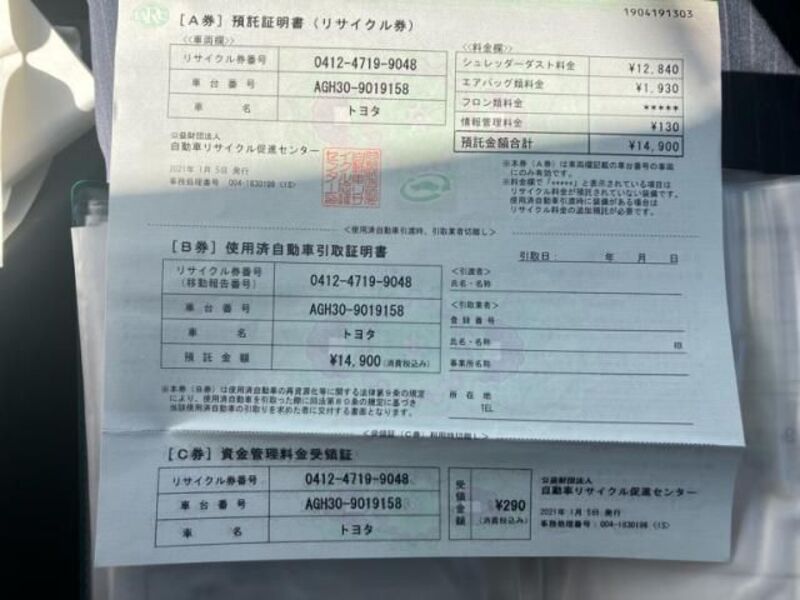 1904191303
[A券] 預託証明書(リサイクル券)
<<車両欄>>
リサイクル券番号 0412-4719-9048
車台番号 AGH30-9019158
車名 トヨタ
<<料金欄>>
シュレッダーダスト料金 ¥12,840
エアバッグ類料金 ¥1,930
フロン類料金 *****
情報管理料金 ¥130
預託金額合計 ¥14,900
公益財団法人
自動車リサイクル促進センター
2021年 1月 5日 発行
事務処理番号 004-1830198 (1S)
※本券(A券)は車両欄記載の車台番号の車両
にのみ有効です。
※料金欄で「*****」と表示されている項目は
リサイクル料金が預託されていない装備です。
使用済自動車引渡時に装備がある場合は
リサイクル料金の追加預託が必要です。
<使用済自動車引渡時、引取業者切離し>
[B券] 使用済自動車引取証明書
引取日: 年 月 日
リサイクル券番号
(移動報告番号) 0412-4719-9048
車台番号 AGH30-9019158
車名 トヨタ
預託金額 ¥14,900(消費税込み)
<引渡者>
氏名・名称
<引取業者>
登録番号
氏名・名称 印
事業所名称
所在地
TEL
※本券(B券)は使用済自動車の再資源化等に関する法律第9条の規定
により、使用済自動車を引取った際に同法第80条の規定に基づき
当該使用済自動車の引取りを求めた者に交付する書面となります。
<受領証(C券)利用時切離し>
[C券] 資金管理料金受領証
リサイクル券番号 0412-4719-9048
車台番号 AGH30-9019158
車名 トヨタ
受領金額 ¥290
(消費税込み)
公益財団法人
自動車リサイクル促進センター
2021年 1月 5日 発行
事務処理番号:004-1830198 (1S)